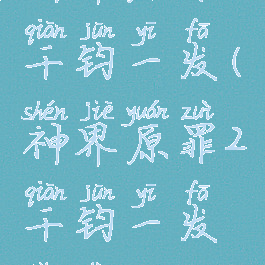 qiān jūn yī fà
千钧一发(
shén jiè yuán zuì
神界原罪2
qiān jūn yī fà
千钧一发